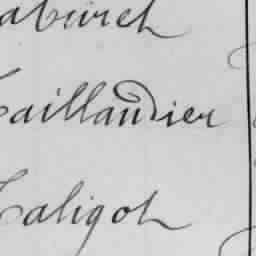 Taburet
Taillandier
Taligot